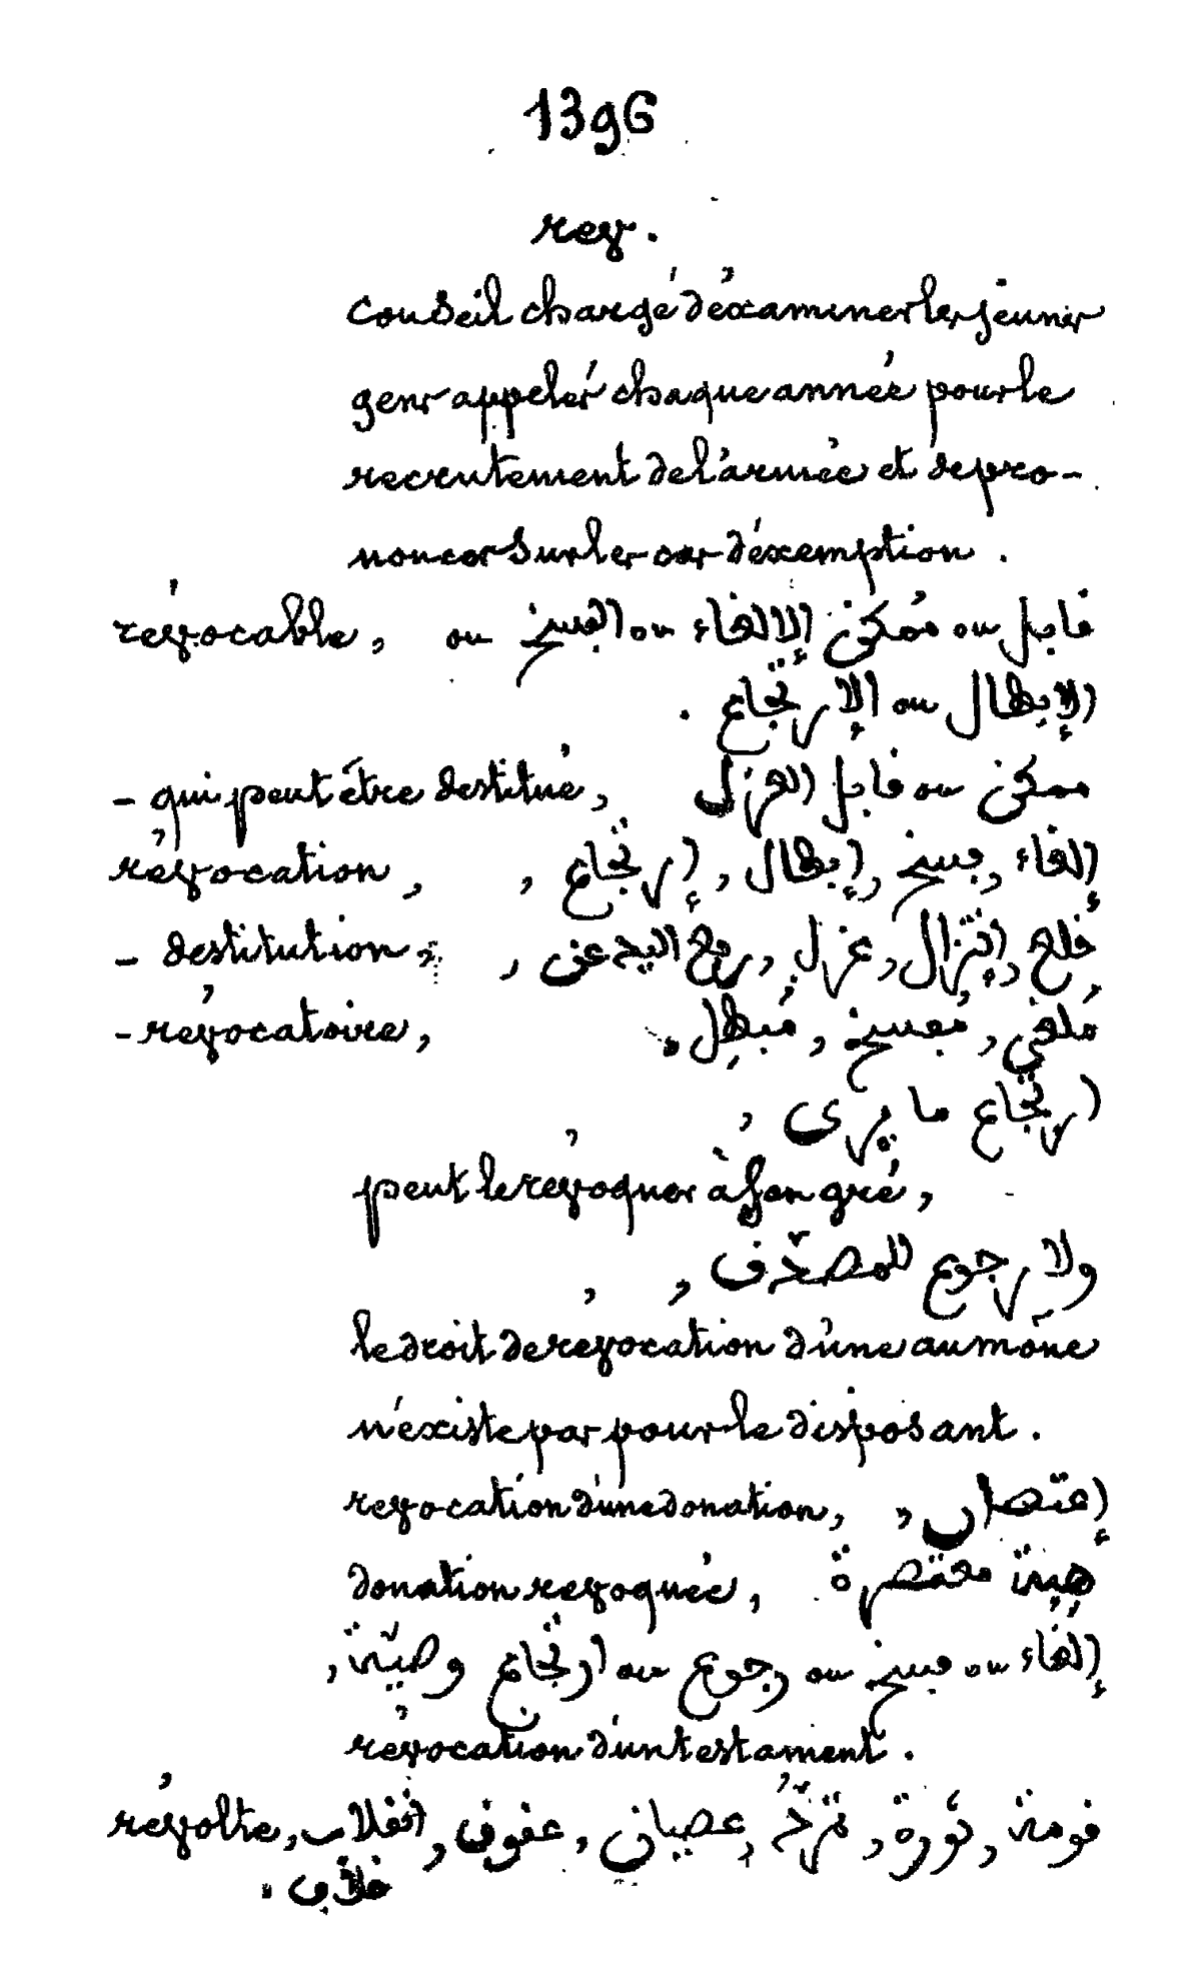 1396
rev.
conseil chargé d'éxaminer les jeunes
gens appelés chaque année pour le
recrutement de l'armée et de pro-
noncer sur les cas d'éxemption.
révocable, قابل ou مُمكن الإلغاء ou الفسخ ou
الإبطال ou الإرتجاع.
- qui peut être destitué, ممكن ou قابل العزل
révocation, إلغاء, فسخ, إبطال, إرتجاع,
- destitution, خلع, إنتزال, عزل, رفع اليد عن,
- révocatoire, مُلغي, مُفسخ, مُبطِل.
ارتجاع ما يرى,
peut le révoquer à son gré,
ولا رجوع للمصدّق,
le droit de révocation d'une aumône
n'éxiste pas pour le disposant.
révocation d'une donation, إعتصار,
donation révoquée, هبة معتصرة
إلغاء ou فسخ ou رجوع ou ارتجاع وصيّة,
révocation d'un testament.
révolte, قومة, ثورة, تمرّد, عصيان, عقوق, انقلاب,
خلاف.